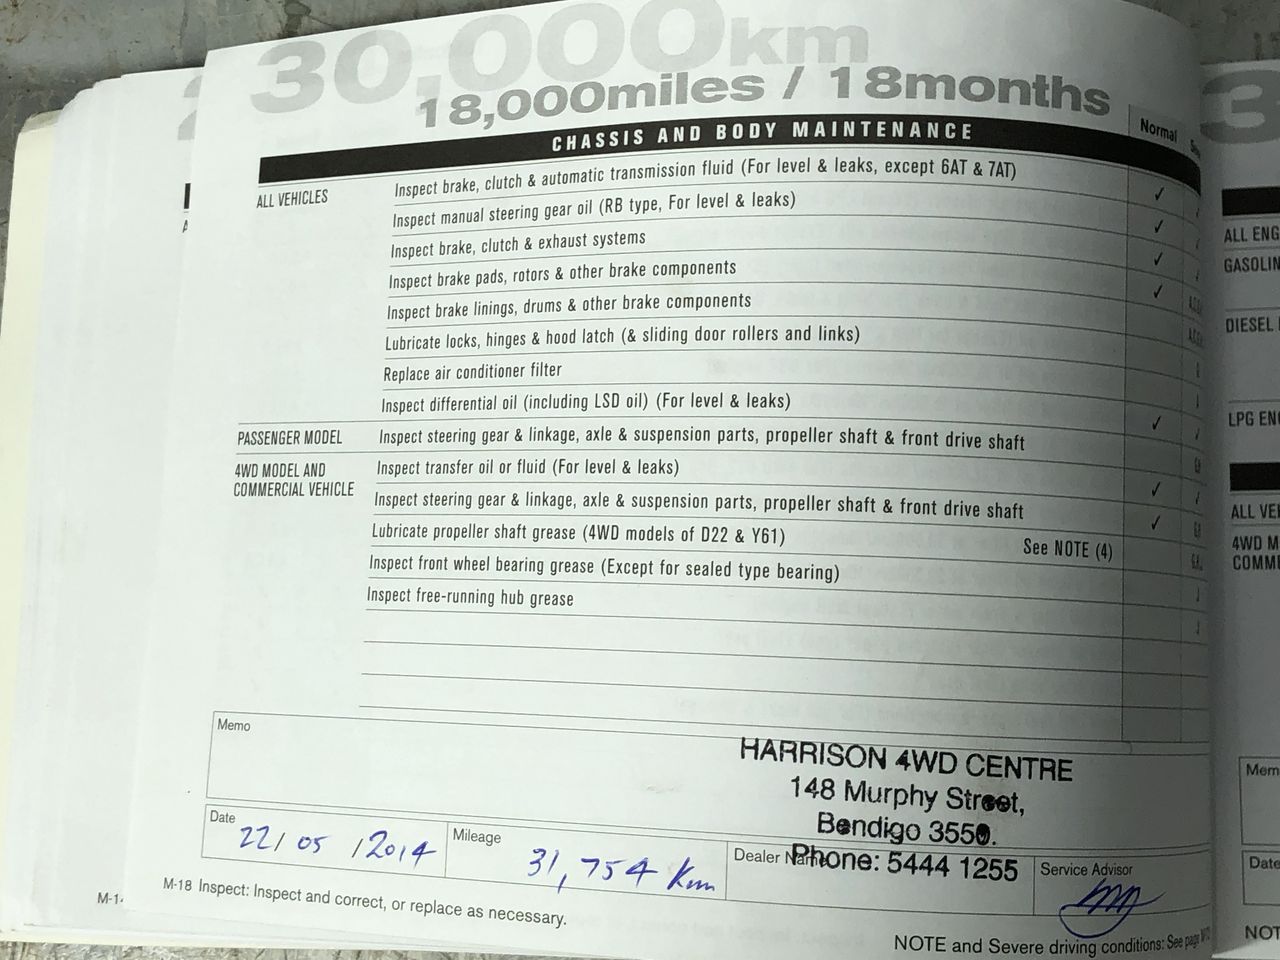 30,000km
18,000miles / 18months
CHASSIS AND BODY MAINTENANCE
Normal
ALL VEHICLES
Inspect brake, clutch & automatic transmission fluid (For level & leaks, except 6AT & 7AT) ✓
Inspect manual steering gear oil (RB type, For level & leaks) ✓
Inspect brake, clutch & exhaust systems ✓
Inspect brake pads, rotors & other brake components ✓
Inspect brake linings, drums & other brake components
Lubricate locks, hinges & hood latch (& sliding door rollers and links)
Replace air conditioner filter
Inspect differential oil (including LSD oil) (For level & leaks) ✓
PASSENGER MODEL
Inspect steering gear & linkage, axle & suspension parts, propeller shaft & front drive shaft
4WD MODEL AND
COMMERCIAL VEHICLE
Inspect transfer oil or fluid (For level & leaks) ✓
Inspect steering gear & linkage, axle & suspension parts, propeller shaft & front drive shaft ✓
Lubricate propeller shaft grease (4WD models of D22 & Y61) See NOTE (4)
Inspect front wheel bearing grease (Except for sealed type bearing)
Inspect free-running hub grease
Memo
HARRISON 4WD CENTRE
148 Murphy Street,
Bendigo 3550.
Phone: 5444 1255
Date
22/05/2014
Mileage
31,754 Km
Dealer Name
Service Advisor
M-18 Inspect: Inspect and correct, or replace as necessary.
NOTE and Severe driving conditions: See page
M-1
3
ALL ENG
GASOLIN
DIESEL
LPG EN
ALL VE
4WD M
COMM
Mem
Date
NOT